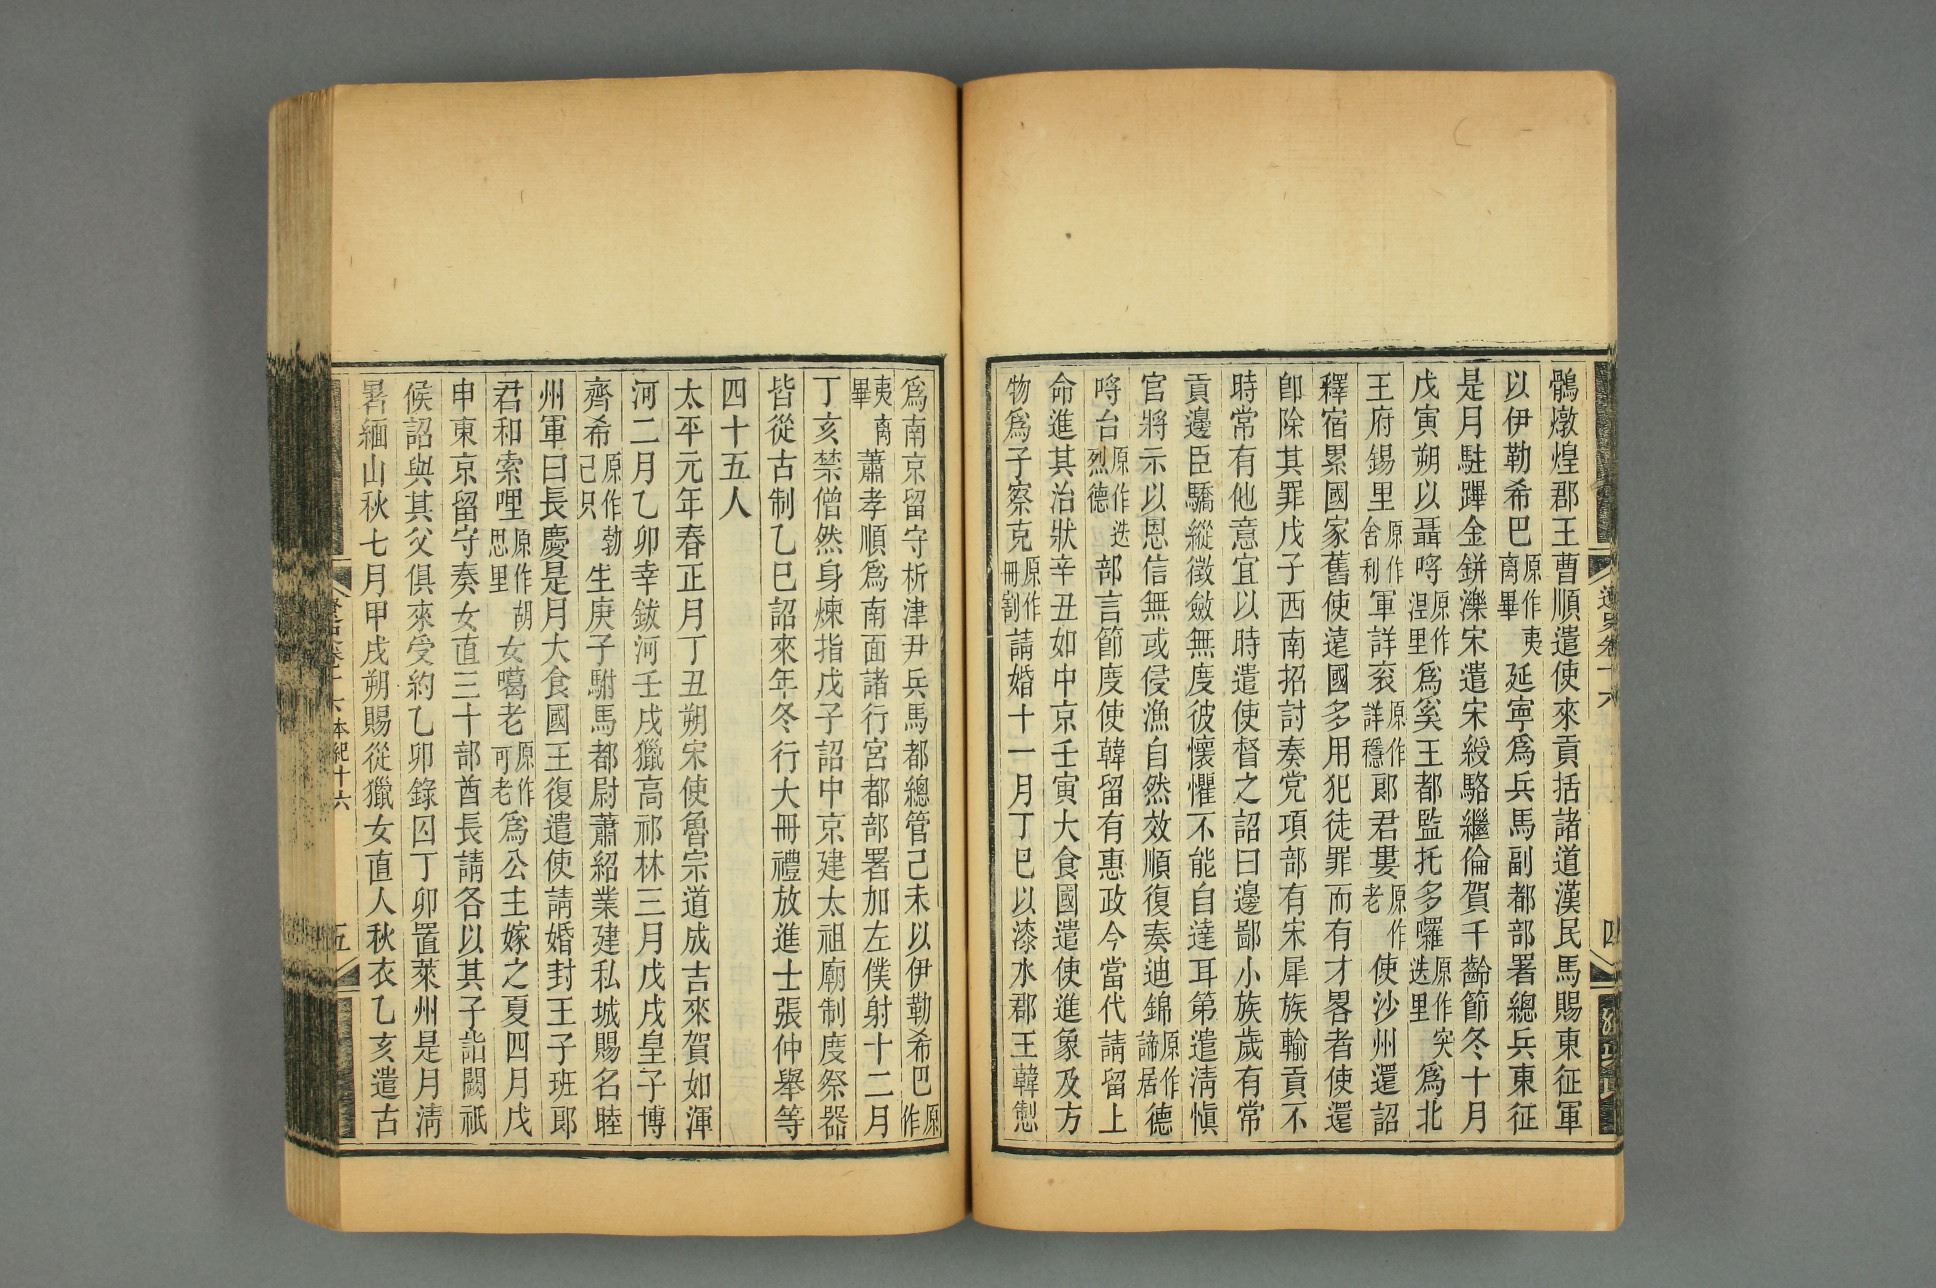 鶻燉煌郡王曹順遣使來貢括諸道漢民馬賜東征軍
以伊勒希巴原作夷離畢延寧爲兵馬副都部署總兵東征
是月駐蹕金鉼濼宋遣宋綬駱繼倫賀千齡節冬十月
戊寅朔以聶哷原作湼里爲奚王都監托多囉原作突迭里爲北
王府錫里原作舍利軍詳衮原作詳穩郎君婁原作老使沙州還詔
釋宿累國家舊使遠國多用犯徒罪而有才畧者使還
卽除其罪戊子西南招討奏党項部有宋犀族輸貢不
時常有他意宜以時遣使督之詔曰邊鄙小族歲有常
貢邊臣驕縱徵斂無度彼懷懼不能自達耳第遣淸愼
官將示以恩信無或侵漁自然效順復奏迪錦原作諦居德
哷台原作迭烈德部言節度使韓留有惠政今當代請留上
命進其治狀辛丑如中京壬寅大食國遣使進象及方
物爲子察克原作冊割請婚十一月丁巳以漆水郡王韓制
遼史卷十六
四
爲南京留守析津尹兵馬都總管己未以伊勒希巴原作
夷离畢蕭孝順爲南面諸行宮都部署加左僕射十二月
丁亥禁僧然身煉指戊子詔中京建太祖廟制度祭器
皆從古制乙巳詔來年冬行大冊禮放進士張仲舉等
四十五人
太平元年春正月丁丑朔宋使魯宗道成吉來賀如渾
河二月乙卯幸鈸河壬戌獵高祁林三月戊戌皇子博
齊希原作勃己只生庚子駙馬都尉蕭紹業建私城賜名睦
州軍曰長慶是月大食國王復遣使請婚封王子班郎
君和索哩原作胡思里女噶老原作可老爲公主嫁之夏四月戊
申東京留守奏女直三十部酋長請各以其子詣闕祇
候詔與其父俱來受約乙卯錄囚丁卯置萊州是月淸
暑緬山秋七月甲戌朔賜從獵女直人秋衣乙亥遣古
本紀十六
五